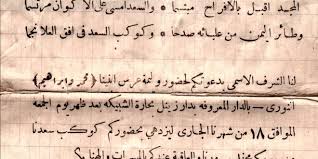 المجد اقبل بالافراح مبتسما * والسعد امسى على الاكوان مرتسما
وطائر اليمن من عليائه صدحا * وكوكب السعد في افق العلا نجما
لنا الشرف الاسمى بدعوتكم لحضور وليمة عرس ابنينا (محمد وابراهيم)
انورى — بالدار المعروفه بدار زينل بحارة الشنبكه بعد ظهر يوم الجمعة
الموافق ١٨ من شهرنا الجارى ليزدهى بحضوركم كوكب سعدنا